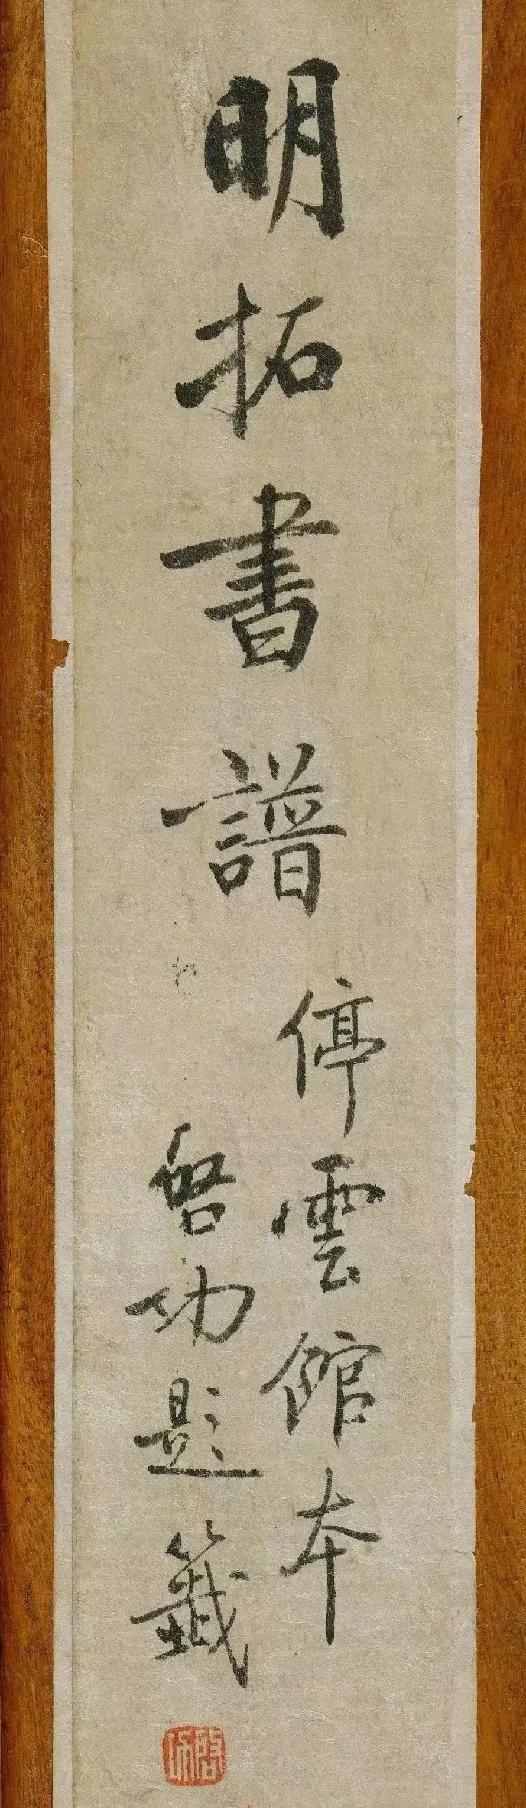 明拓書譜
停雲館本
啓功題籤
啓功